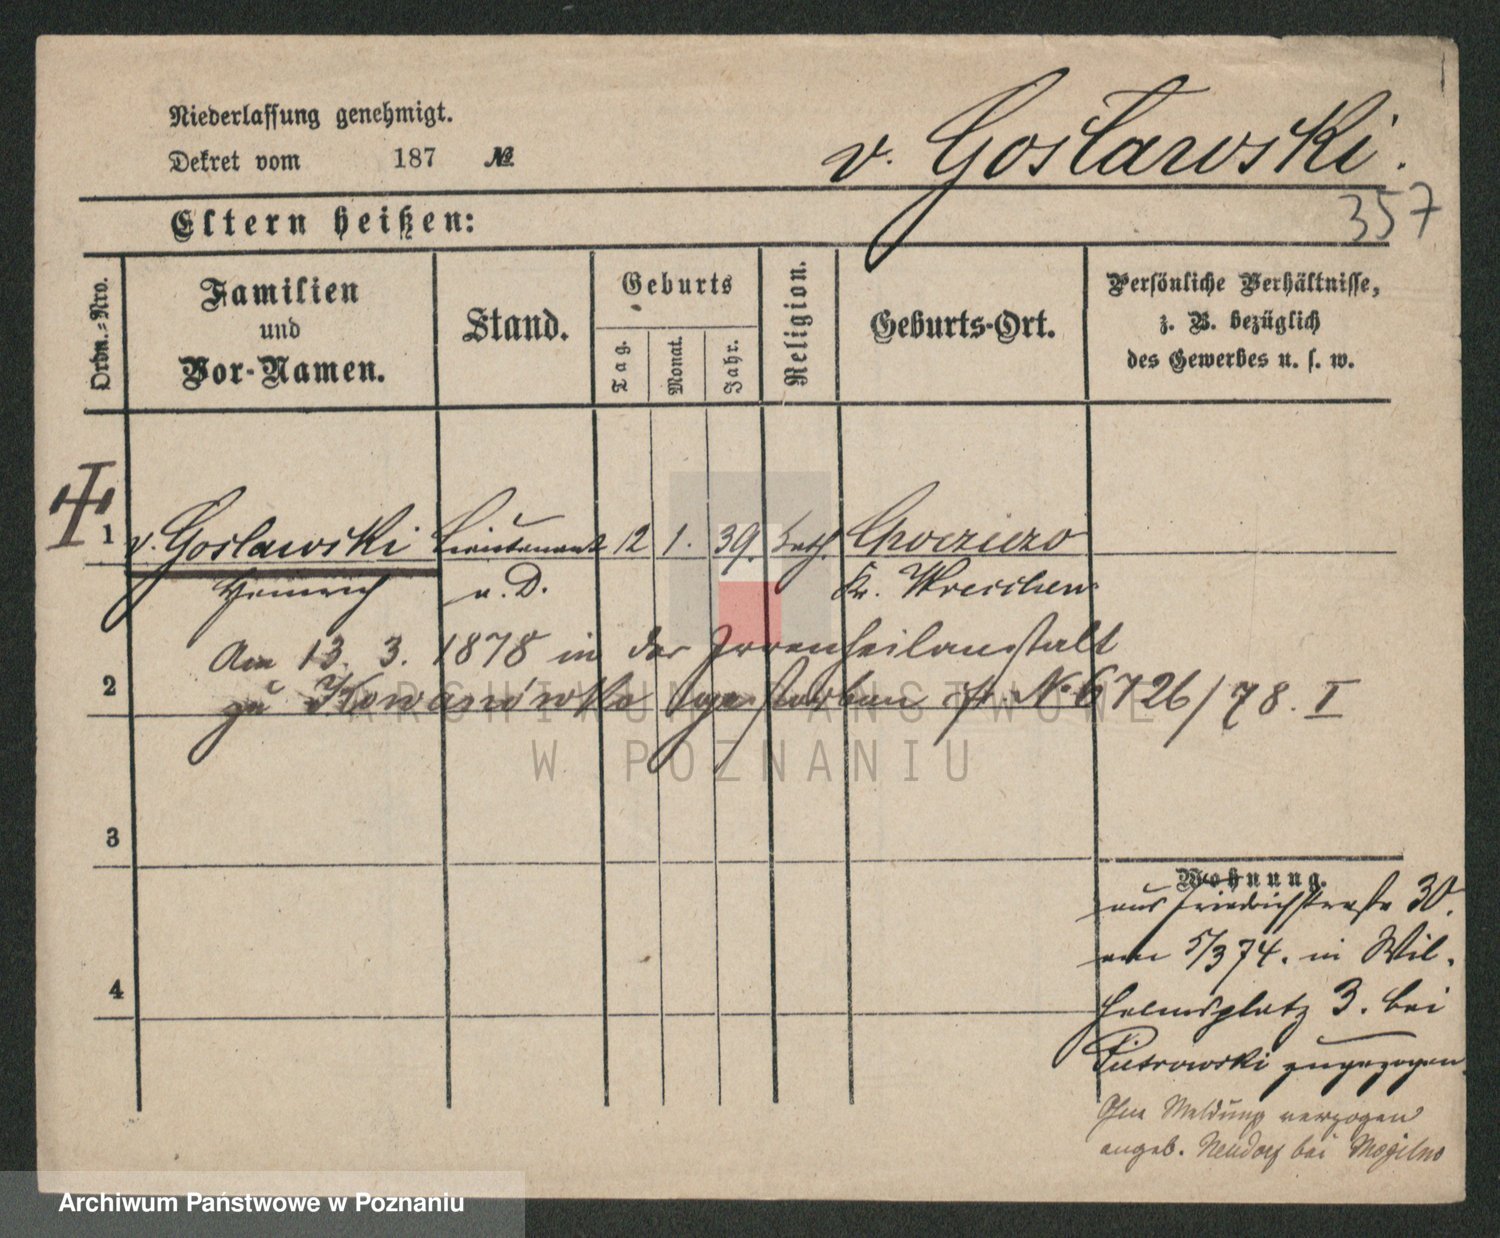 Niederlassung genehmigt.
Dekret vom 187 №
v. Gosławski.
357
Eltern heißen:
Ordn.-Nro.
Familien
und
Vor-Namen.
Stand.
Geburts
Tag.
Monat.
Jahr.
Religion.
Geburts-Ort.
Persönliche Verhältnisse,
z. B. bezüglich
des Gewerbes u. s. w.
1 v. Goslawski Lieutenant 12 1. 39. kath.
Heinrich a. D. Kr. Wreschen
Am 13. 3. 1878 in der Irrenheilanstalt
2
zu Kowanówko gestorben cfr № 6726/78. I
3
Wohnung.
aus Friedrichstraße 30.
am 5/3 74. in Wil-
4
helmsplatz 3. bei
Pietrowski zugezogen
Ohne Meldung verzogen
angeb. Neudorf bei Mogilno
ARCHIWUM PAŃSTWOWE
W POZNANIU
Archiwum Państwowe w Poznaniu